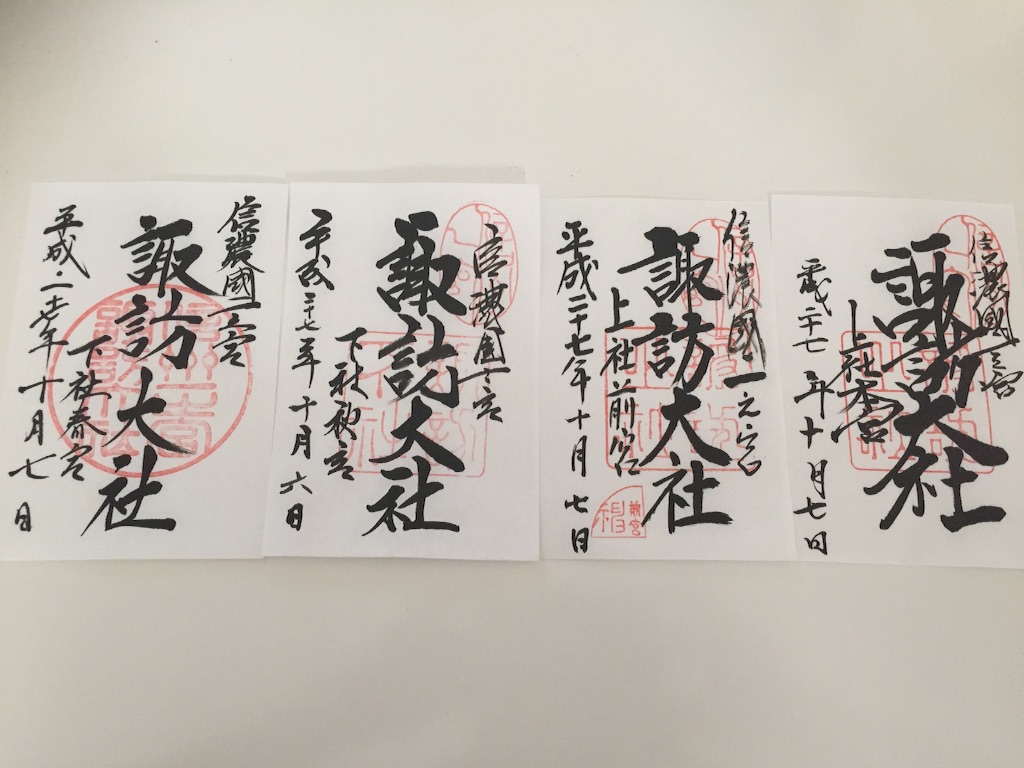 信濃國一宮
諏訪大社
下社春宮
平成二七年十月七日
信濃國一宮
諏訪大社
下社秋宮
平成二十七年十月六日
信濃國一之宮
諏訪大社
上社前宮
平成二十七年十月七日
前宮
信濃國一宮
諏訪大社
上社本宮
平成二十七年十月七日